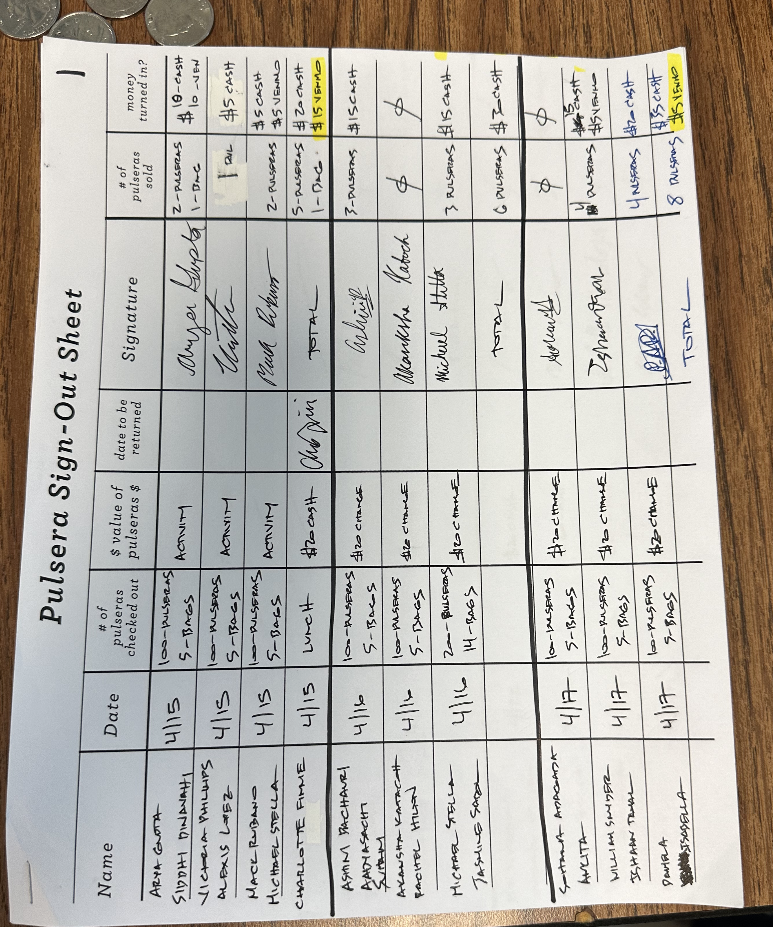 1
Pulsera Sign-Out Sheet
Name
Date
# of
pulseras
checked out
$ value of
pulseras $
date to be
returned
Signature
# of
pulseras
sold
money
turned in?
ARYA GUPTA
SIDDHI
4/15
100-PULSERAS
5-BAGS
ACTIVITY
2-PULSERAS
1-BAG
$10-VEN
VICTORIA PHILLIPS
ALEXIS LOPEZ
4/15
100-PULSERAS
5-BAGS
ACTIVITY
1 PUL
$5 CASH
MACK RUBANO
MICHAEL STELLA
4/15
100-PULSERAS
5-BAGS
ACTIVITY
2-PULSERAS
$5 CASH
$5 VENMO
CHARLOTTE
4/15
LUNCH
$20 CASH
TOTAL
5-PULSERAS
1-BAG
$20 CASH
$15 VENMO
4/16
100-PULSERAS
5-BAGS
$20 CHANGE
3-PULSERAS
$15 CASH
AKANSHA
4/16
100-PULSERAS
5-BAGS
$20 CHANGE
Akanksha Katoch
Ø
Ø
MICHAEL STELLA
4/16
200-PULSERAS
14-BAGS
$20 CHANGE
Michael Stella
3 PULSERAS
$15 CASH
TOTAL
6 PULSERAS
$30 CASH
ANKITA
4/17
100-PULSERAS
5-BAGS
$20 CHANGE
Ø
Ø
WILLIAM SNYDER
4/17
100-PULSERAS
5-BAGS
$20 CHANGE
4 PULSERAS
$15 CASH
$5 VENMO
ISABELLA
4/17
100-PULSERAS
5-BAGS
$20 CHANGE
4 PULSERAS
$20 CASH
TOTAL
8 PULSERAS
$35 CASH
$5 VENMO